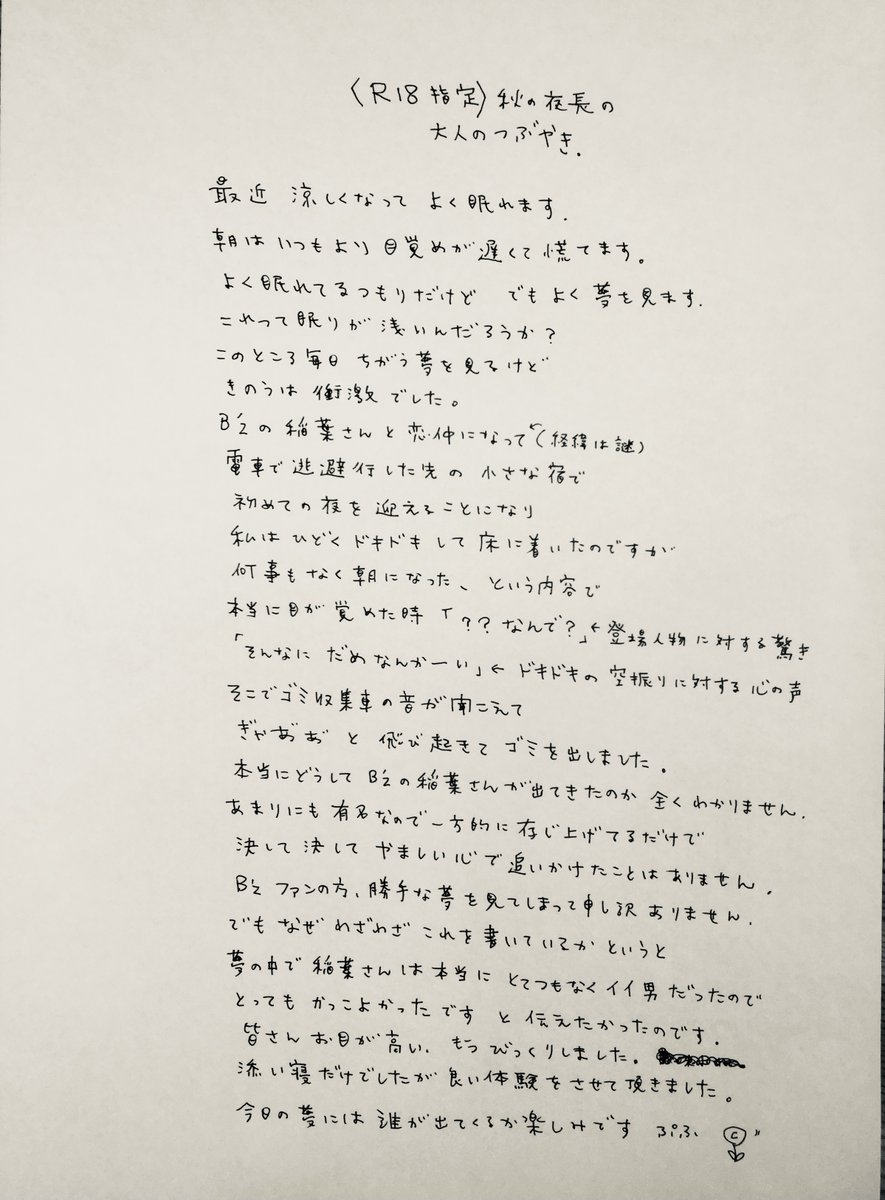 〈R18指定〉秋の夜長の
大人のつぶやき.
最近 涼しくなって よく眠れます.
朝は いつもより 目覚めが 遅くて 慌てます。
よく眠れてるつもりだけど でもよく夢を見ます.
これって眠りが 浅いんだろうか?
このところ毎日 ちがう夢を見るけど
きのうは 衝激でした。
B'zの 稲葉さんと 恋仲になって←(経緯は謎)
電車で 逃避行した先の 小さな宿で
初めての夜を 迎えることになり
私は ひどく ドキドキ して 床に着いたのですが
何事もなく朝になった、という内容で
本当に目が 覚めた時 「??なんで?」←登場人物に対する驚き
「そんなに だめなんかーい」← ドキドキの 空振りに対する心の声
そこでゴミ収集車の音が聞こえて
ぎゃあ゛ぁ゛と 飛び起きて ゴミを出しました。
本当にどうして B'zの稲葉さんが出てきたのか 全くわかりません.
あまりにも有名なので一方的に 存じ上げてるだけで
決して 決して やましい心で 追いかけたことは ありません.
B'z ファンの方、勝手な夢を見てしまって申し訳ありません.
でも なぜ わざわざ これを書いているか というと
夢の中で 稲葉さんは 本当に とてつもなくイイ男 だったので
とっても かっこよかったです と 伝えたかったのです.
皆さん お目が高い. もう びっくりしました.
添い寝だけでしたが 良い体験を させて 頂きました。
今日の夢には 誰が出てくるか楽しみです ぷふ C"